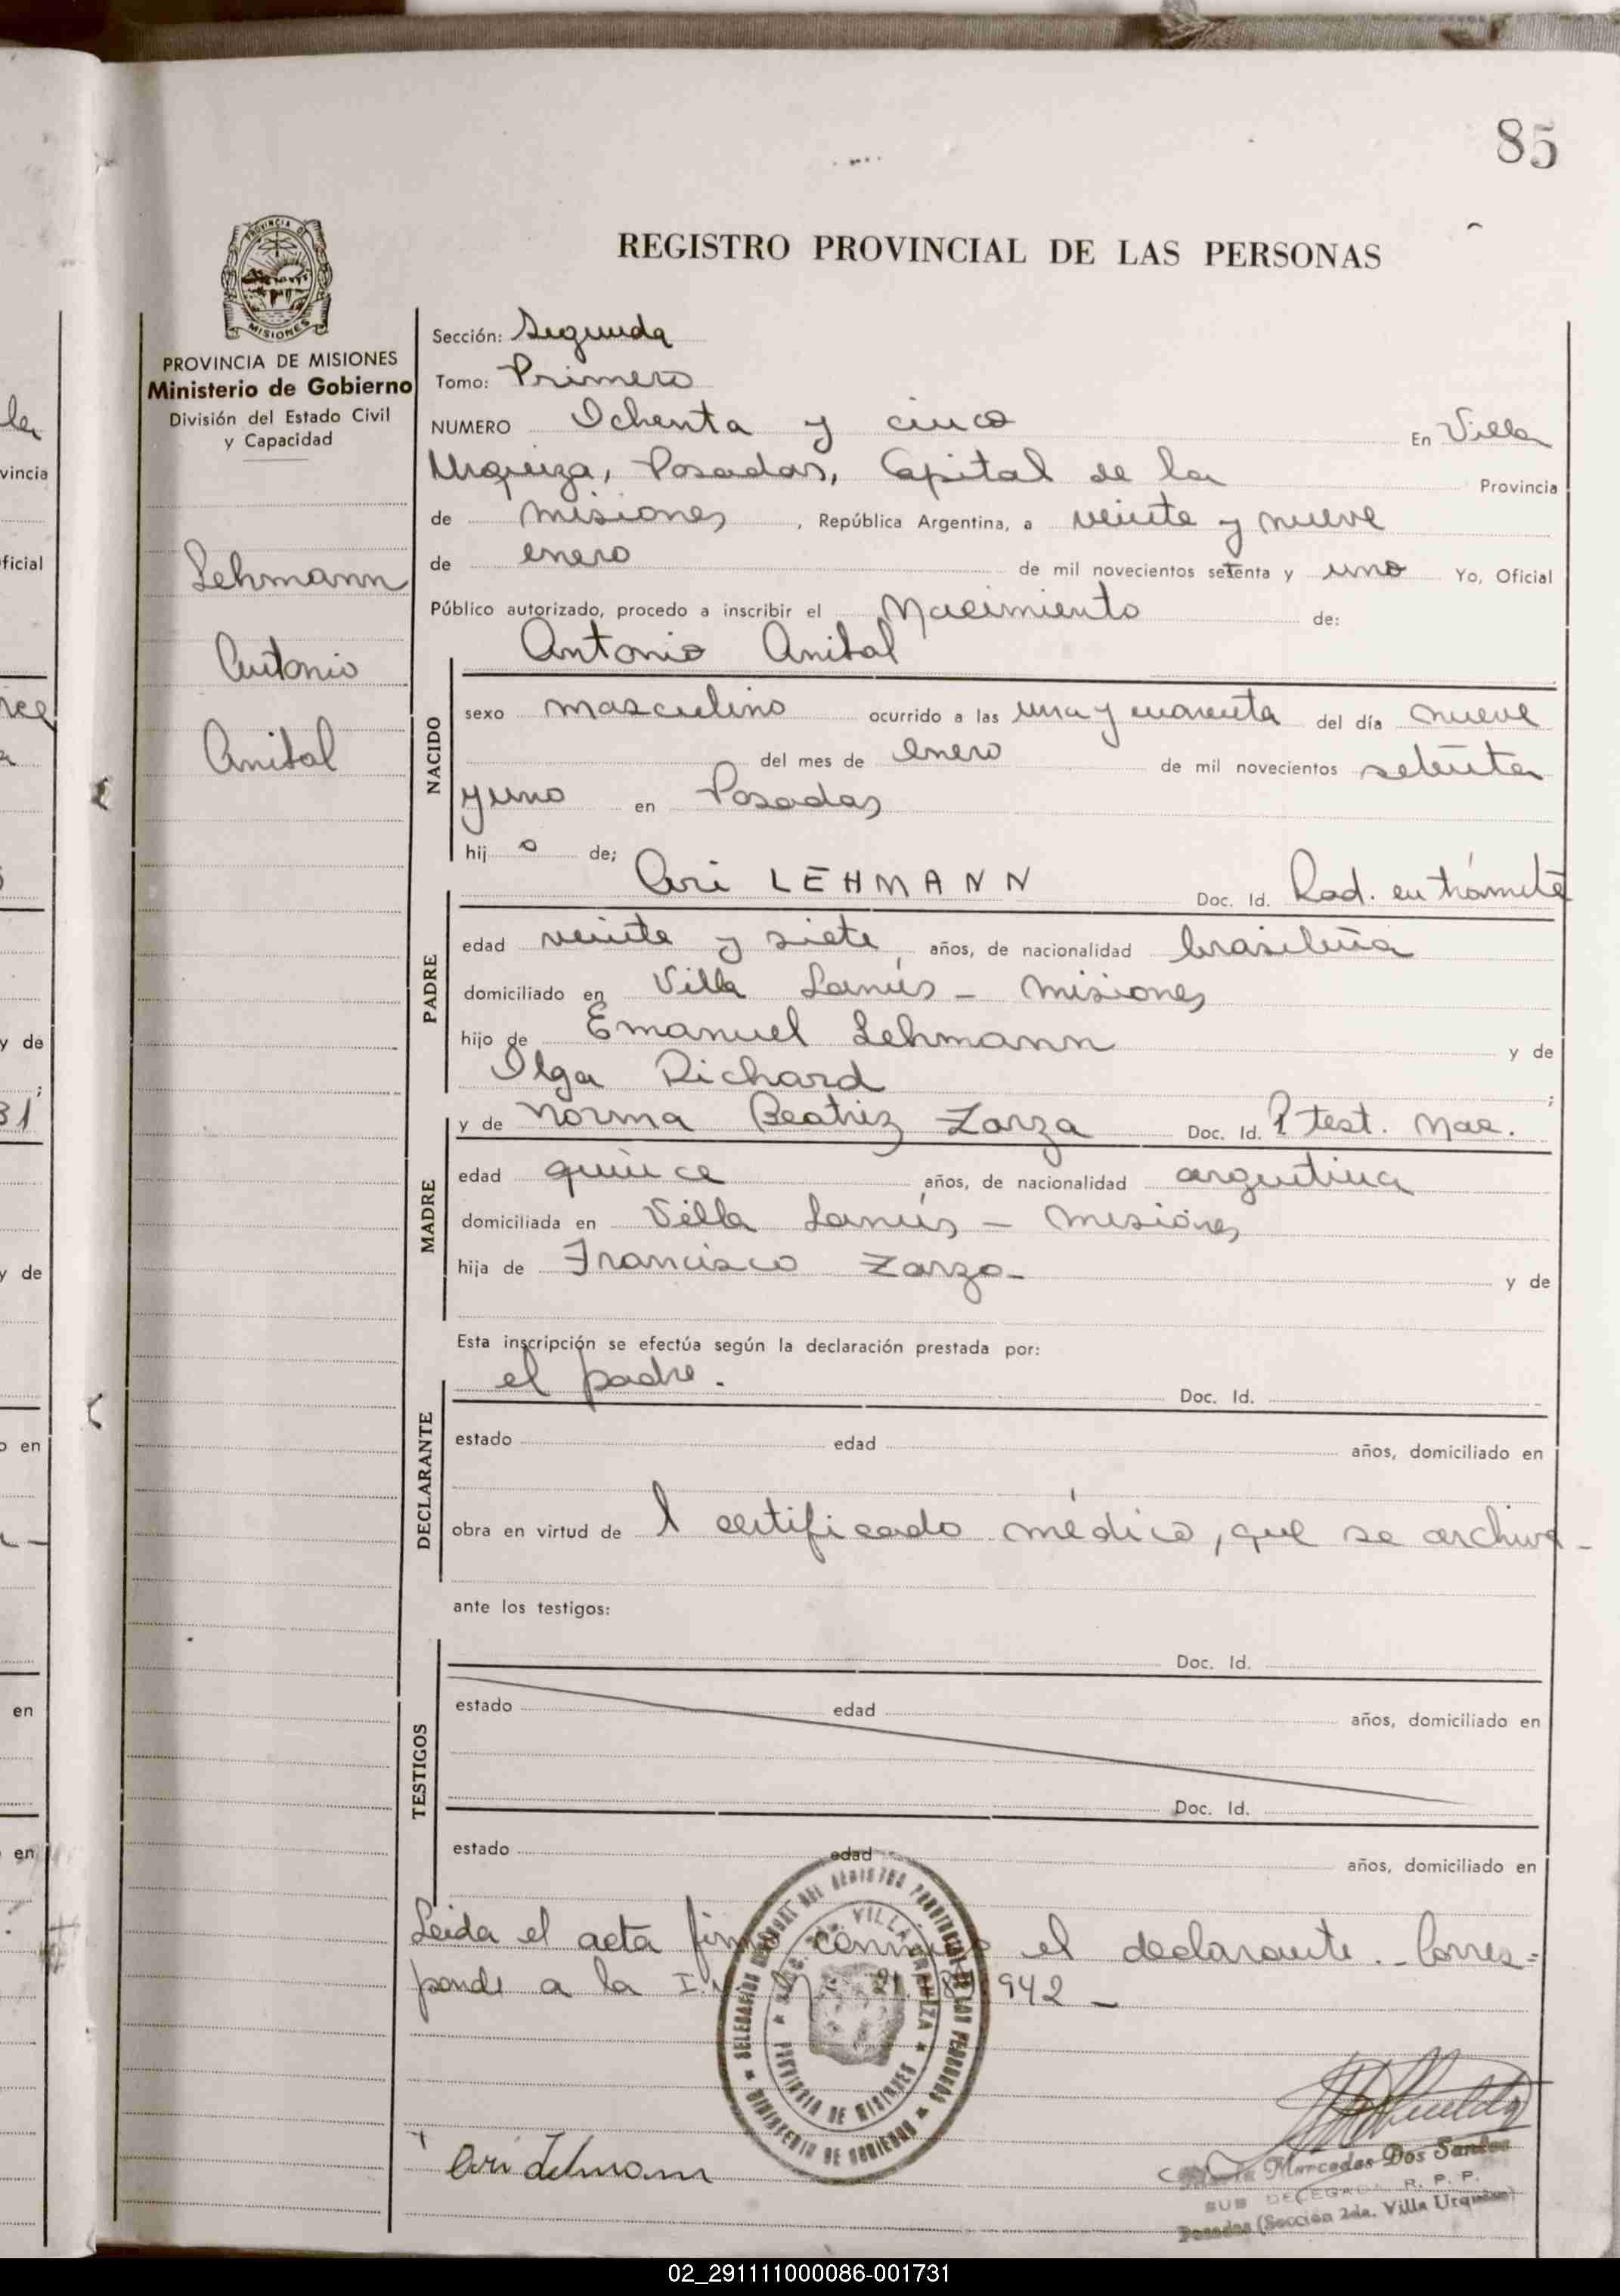 85
REGISTRO PROVINCIAL DE LAS PERSONAS
PROVINCIA DE
MISIONES
PROVINCIA DE MISIONES
Ministerio de Gobierno
División del Estado Civil
y Capacidad
Lehmann
Antonio
Anibal
Sección: Segunda
Tomo: Primero
NUMERO Ochenta y cinco En Villa
Urquiza, Posadas, Capital de la Provincia
de misiones, República Argentina, a veinte y nueve
de enero de mil novecientos setenta y uno Yo, Oficial
Público autorizado, procedo a inscribir el Nacimiento de:
Antonio Anibal
NACIDO
sexo masculino ocurrido a las una y cuarenta del día nueve
del mes de enero de mil novecientos setenta
y uno en Posadas
hij o de;
Ari LEHMANN Doc. Id. Rad. en trámite
PADRE
edad veinte y siete años, de nacionalidad brasileña
domiciliado en Villa Lanús - misiones
hijo de Emanuel Lehmann y de
Olga Richard ;
y de Norma Beatriz Zarza Doc. Id. P test. Nac.
MADRE
edad quince años, de nacionalidad argentina
domiciliada en Villa Lanús - misiones
hija de Francisco Zarza - y de
Esta inscripción se efectúa según la declaración prestada por:
el padre. Doc. Id.
DECLARANTE
estado edad años, domiciliado en
obra en virtud de l certificado médico, que se archiva -
ante los testigos:
Doc. Id.
TESTIGOS
estado edad años, domiciliado en
Doc. Id.
estado edad años, domiciliado en
Leida el acta firma conmigo el declarante. - Corres=
ponde a la 942 -
VILLA URQUIZA
PROVINCIA DE MISIONES
MINISTERIO DE GOBIERNO
Ari Lehmann
Mercedes Dos Santos
SUB DELEGADA R. P. P.
Posadas (Sección 2da. Villa Urquiza)
02_291111000086-001731